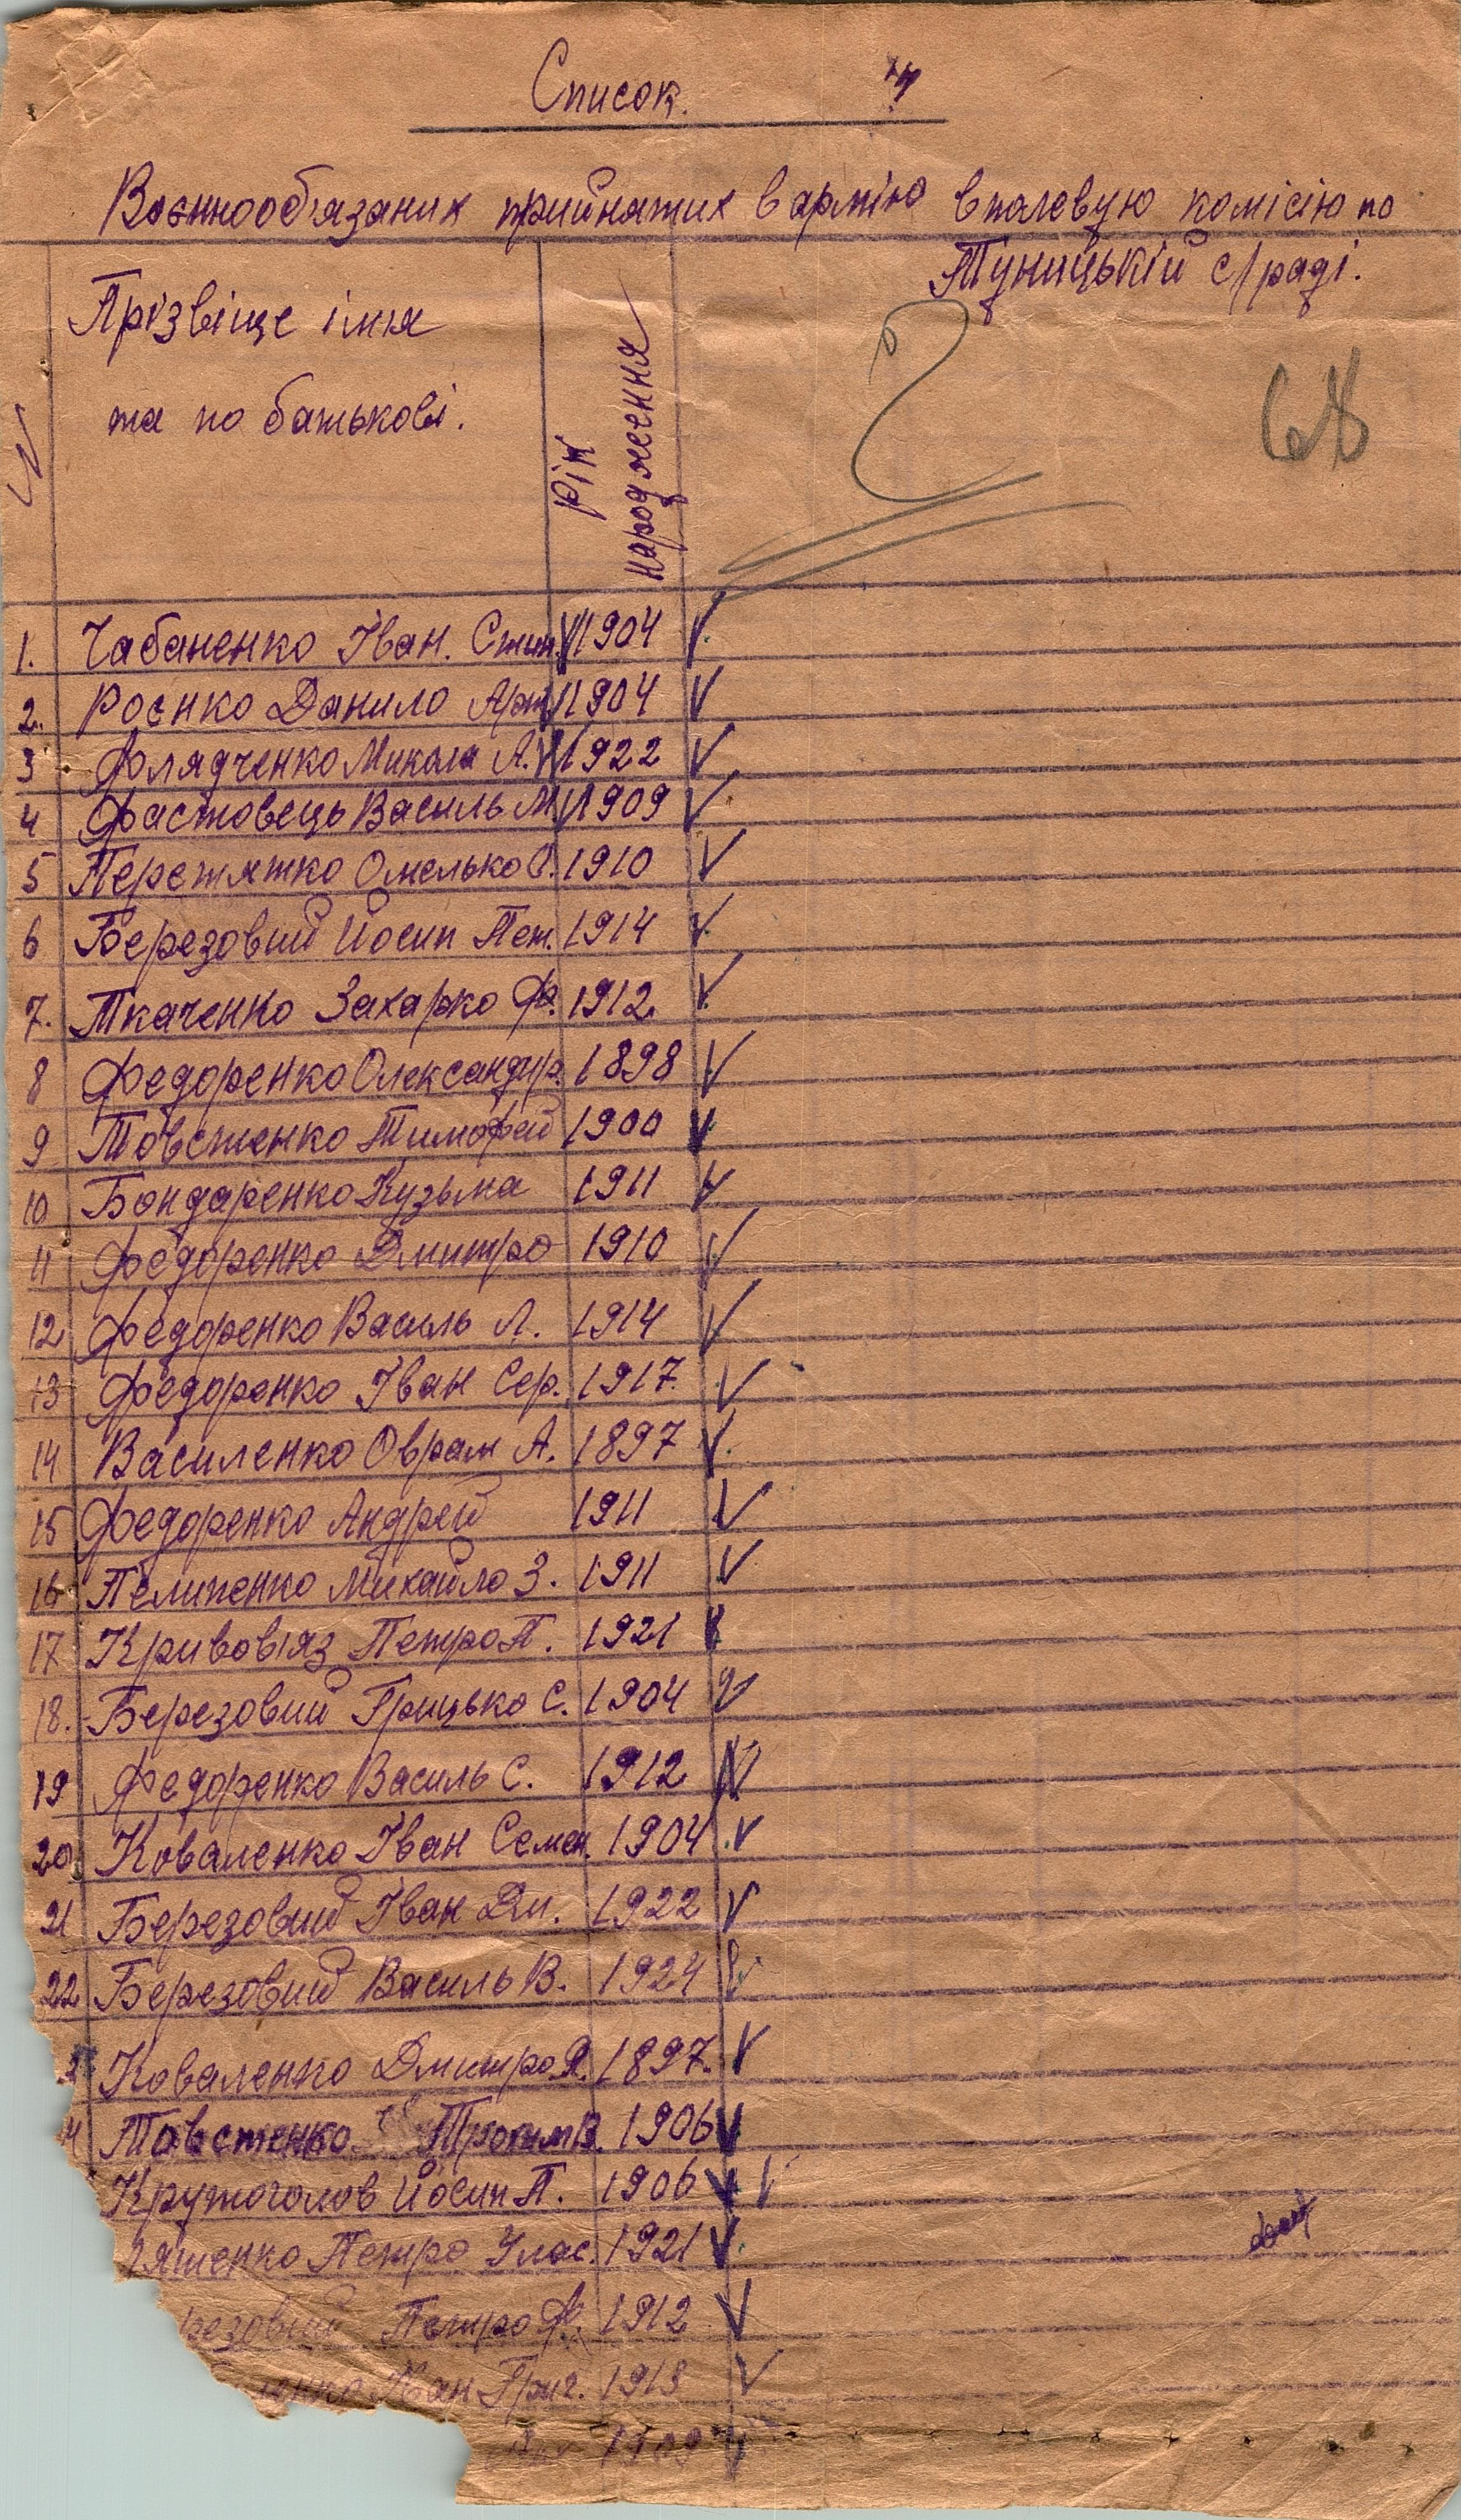 Список.
Воєннообязаних прийнятих в армію вполевую комісію по
Туницькій с/раді.
N
Прізвіще імя
та по батькові.
Рік
народження
68
1. Чабаненко Іван. Стип. 1904 V
2. Роєнко Данило Арт. 1904 V
3 Флядченко Микола А. 1922 V
4 Фастовець Василь М. 1909 V
5 Перетятко Омелько 1910 V
6 Березовий Йосип Пет. 1914 V
7. Ткаченко Захарко Ф. 1912 V
8 Федоренко Олександр. 1898 V
9 Товстенко Тимофей 1900 V
10 Бондаренко Кузьма 1911 V
11 Федоренко Дмитро 1910 V
12 Федоренко Василь Л. 1914 V
13 Федоренко Іван Сер. 1917 V
14 Василенко Оврам А. 1897 V
15 Федоренко Андрей 1911 V
16 Пелипенко Михайло З. 1911 V
17 Кривовіяз Петро П. 1921 V
18. Березовий Грицько С. 1904 V
19 Федоренко Василь С. 1912 V
20 Коваленко Іван Семен. 1904 V
21 Березовий Іван Дм. 1922 V
22 Березовий Василь В. 1924 V
Коваленко Дмитро Я. 1897. V
4 Товстенко Трохим В. 1906 V
Крутоголов Йосип П. 1906 V V
ятенко Петро Улас. 1921 V
резовий Петро Ф. 1912 V
енко Іван Григ. 1913 V
1909 V